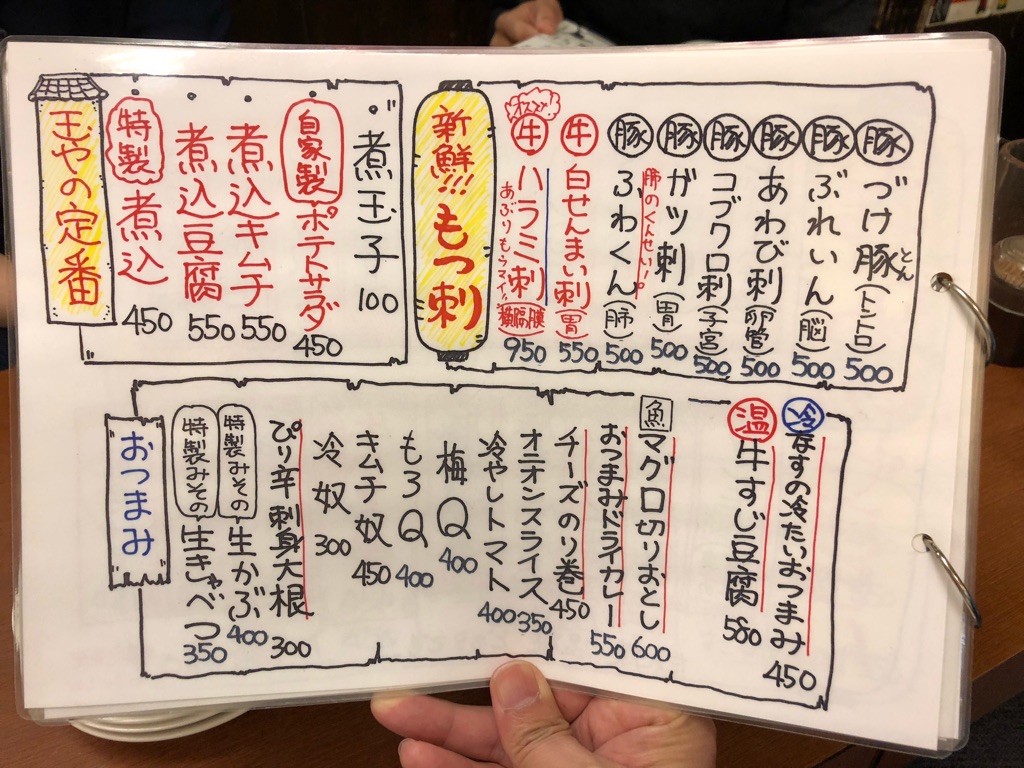 玉やの定番
特製 煮込 450
煮込豆腐 550
煮込キムチ 550
自家製 ポテトサラダ 450
煮玉子 100
新鮮!!! もつ刺
豚 づけ豚(トントロ) 500
とん
豚 ぶれいん(脳) 500
豚 あわび刺(卵管) 500
豚 コブクロ刺(子宮) 500
豚 ガツ刺(胃) 500
豚 ふわくん(肺) 500
肺のくんせい!
牛 白せんまい刺(胃) 550
オススメ!!
牛 ハラミ刺(横隔膜) 950
あぶりもウマイッ!
おつまみ
冷 なすの冷たいおつまみ 450
温 牛すじ豆腐 580
魚 マグロ切りおとし 600
おつまみドライカレー 550
チーズのり巻 450
オニオンスライス 350
冷やしトマト 400
梅Q 400
もろQ 400
キムチ奴 450
冷奴 300
ぴり辛刺身大根 300
特製みその 生かぶ 400
特製みその 生きゃべつ 350